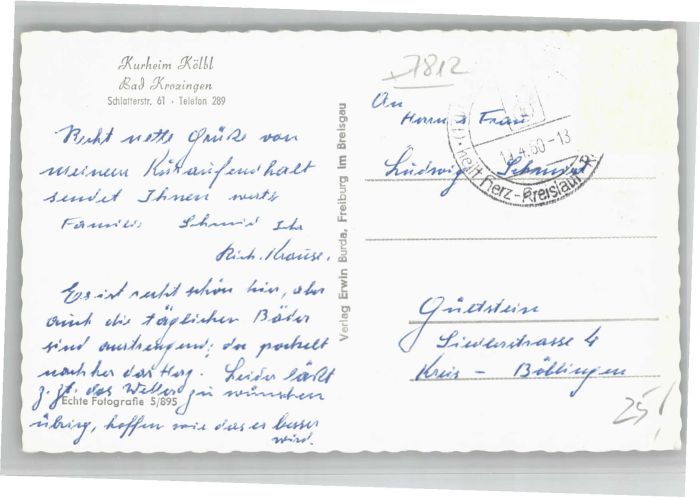 Kurheim Kölbl
Bad Krozingen
Schlatterstr. 61 · Telefon 289
Recht nette Grüße von
meinem Kuraufenthalt
sendet Ihnen werte
Familie Schmid Ihr
Rich. Krause.
Es ist recht schön hier, aber
auch die täglichen Bäder
sind anstrengend; da pochelt
nachher das Herz. Leider läßt
z. Zt. das Wetter zu wünschen
Echte Fotografie 5/895
übrig, hoffen wir das es besser
wird.
Verlag Erwin Burda, Freiburg im Breisgau
7812
An
Herrn u. Frau
Ludwig Schmid
.4.60-13
heilt Herz-Kreislauf-R
Gültstein
Siedlerstrasse 4
Kreis - Böblingen
25